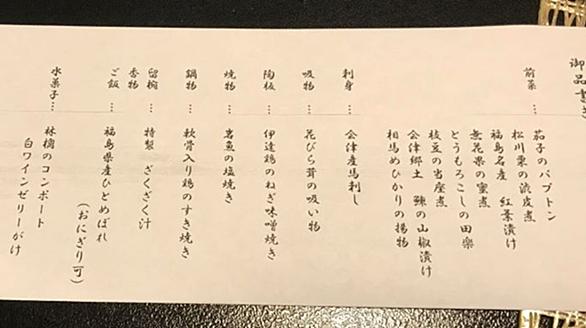 御品書き
前菜…
茄子のパプトン
松川栗の渋皮煮
福島名産 紅葉漬け
無花果の蜜煮
とうもろこしの田楽
枝豆の当座煮
会津郷土 鰊の山椒漬け
相馬めひかりの揚物
刺身… 会津産馬刺し
吸物… 花びら茸の吸い物
陶板… 伊達鶏のねぎ味噌焼き
焼物… 岩魚の塩焼き
鍋物… 軟骨入り鶏のすき焼き
留椀… 特製 ざくざく汁
香物
ご飯… 福島県産ひとめぼれ
(おにぎり可)
水菓子… 林檎のコンポート
白ワインゼリーがけ